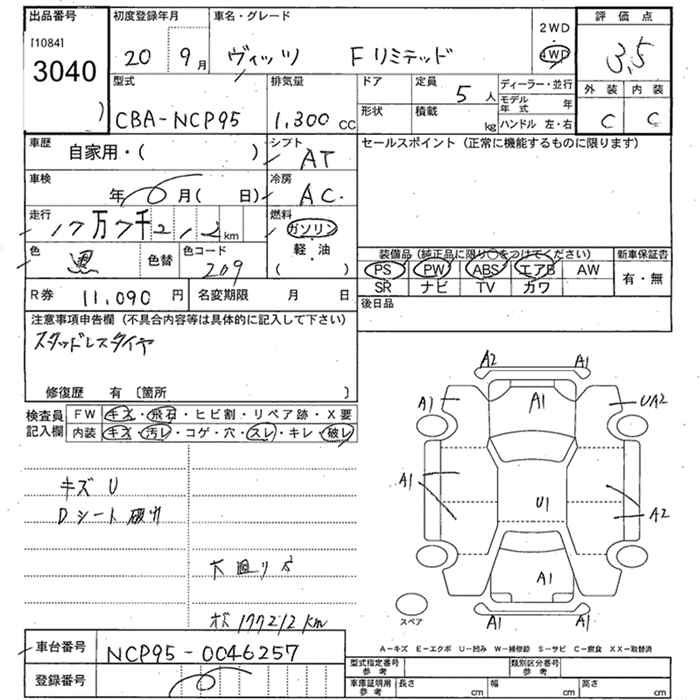 出品番号
[1084]
3040
)
初度登録年月
20 9月
車名・グレード
ヴィッツ Fリミテッド
2WD
4WD
評価点
3.5
外装 内装
C C
型式
CBA-NCP95
排気量
1,300 cc
ドア
形状
定員
5人
積載
kg
ディーラー・並行
モデル年式 年
ハンドル 左・右
車歴
自家用・( )
シフト
AT
セールスポイント (正常に機能するものに限ります)
車検
年 月( 日)
冷房
AC.
走行
17万7千212km
燃料
ガソリン
軽・油
( )
色
黒
色替
色コード
209
装備品(純正品に限り○をつけてください)
新車保証書
PS PW ABS エアB AW
SR ナビ TV カワ
有・無
R券 11,090 円
名変期限 月 日
後日品
注意事項申告欄 (不具合内容等は具体的に記入して下さい)
スタッドレスタイヤ
修復歴 有 〔箇所 〕
検査員記入欄
FW キズ・飛石・ヒビ割・リペア跡・X要
内装 キズ・汚レ・コゲ・穴・スレ・キレ・破レ
キズ U
Dシート破れ
177212km
A2 A1
A1 A1 UA2
A1 U1 A2
A1
A1 A1
スペア
A-キズ E-エクボ U-凹み W-補修跡 S-サビ C-腐食 XX-取替済
車台番号
NCP95-0046257
登録番号
型式指定番号 参考
類別区分番号 参考
車庫証明用 参考
長さ cm
幅 cm
高さ cm